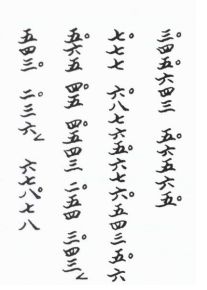 三。四五。六四三　五。六五六五。
七。七七　六。八七六五。六七六。五四三五。六
五。六五　四。五　四。五四三　二。五四　三。四三ㄥ
五四三。　二。三六ㄥ　六七八。七八